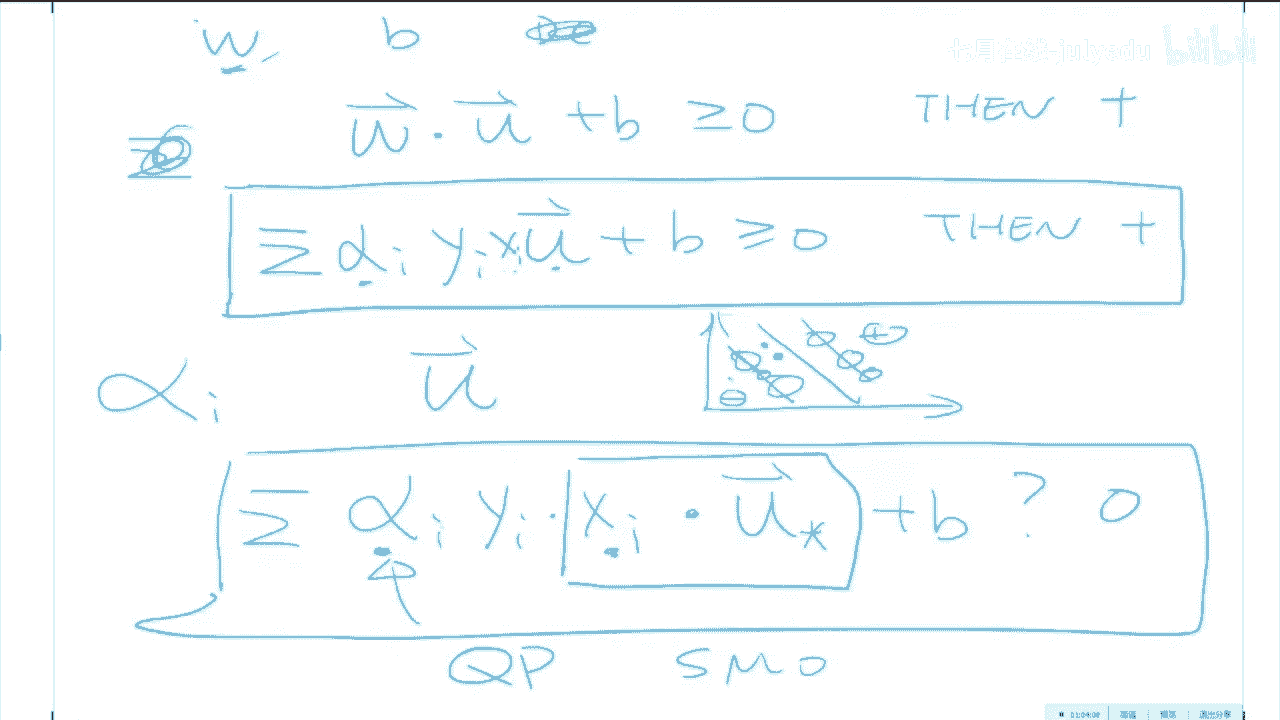 w, b
七月在线-julyedu bilibili
w⃗ · u⃗ + b ≥ 0 THEN +
∑ αᵢ yᵢ xᵢ u⃗ + b ≥ 0 THEN +
αᵢ u⃗
+
−
∑ αᵢ yᵢ · xᵢ · u⃗* + b ? 0
QP SMO